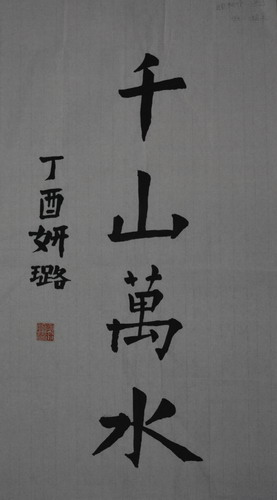 千山萬水
丁酉妍璐